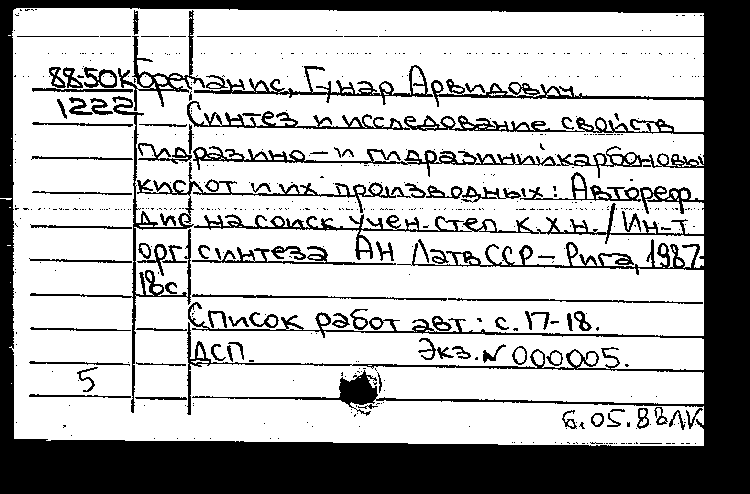 88-50К Бреманис, Гунар Арвидович.
1222 Синтез и исследование свойств
гидразино- и гидразинийкарбоновы
кислот и их производных: Автореф.
дис на соиск. учен. степ к.х.н. / Ин-т
орг. синтеза АН ЛатвССР - Рига, 1987.
18с.
Список работ авт.: с. 17-18.
ДСП. Экз. N 000005.
5
6.05.88ЛК